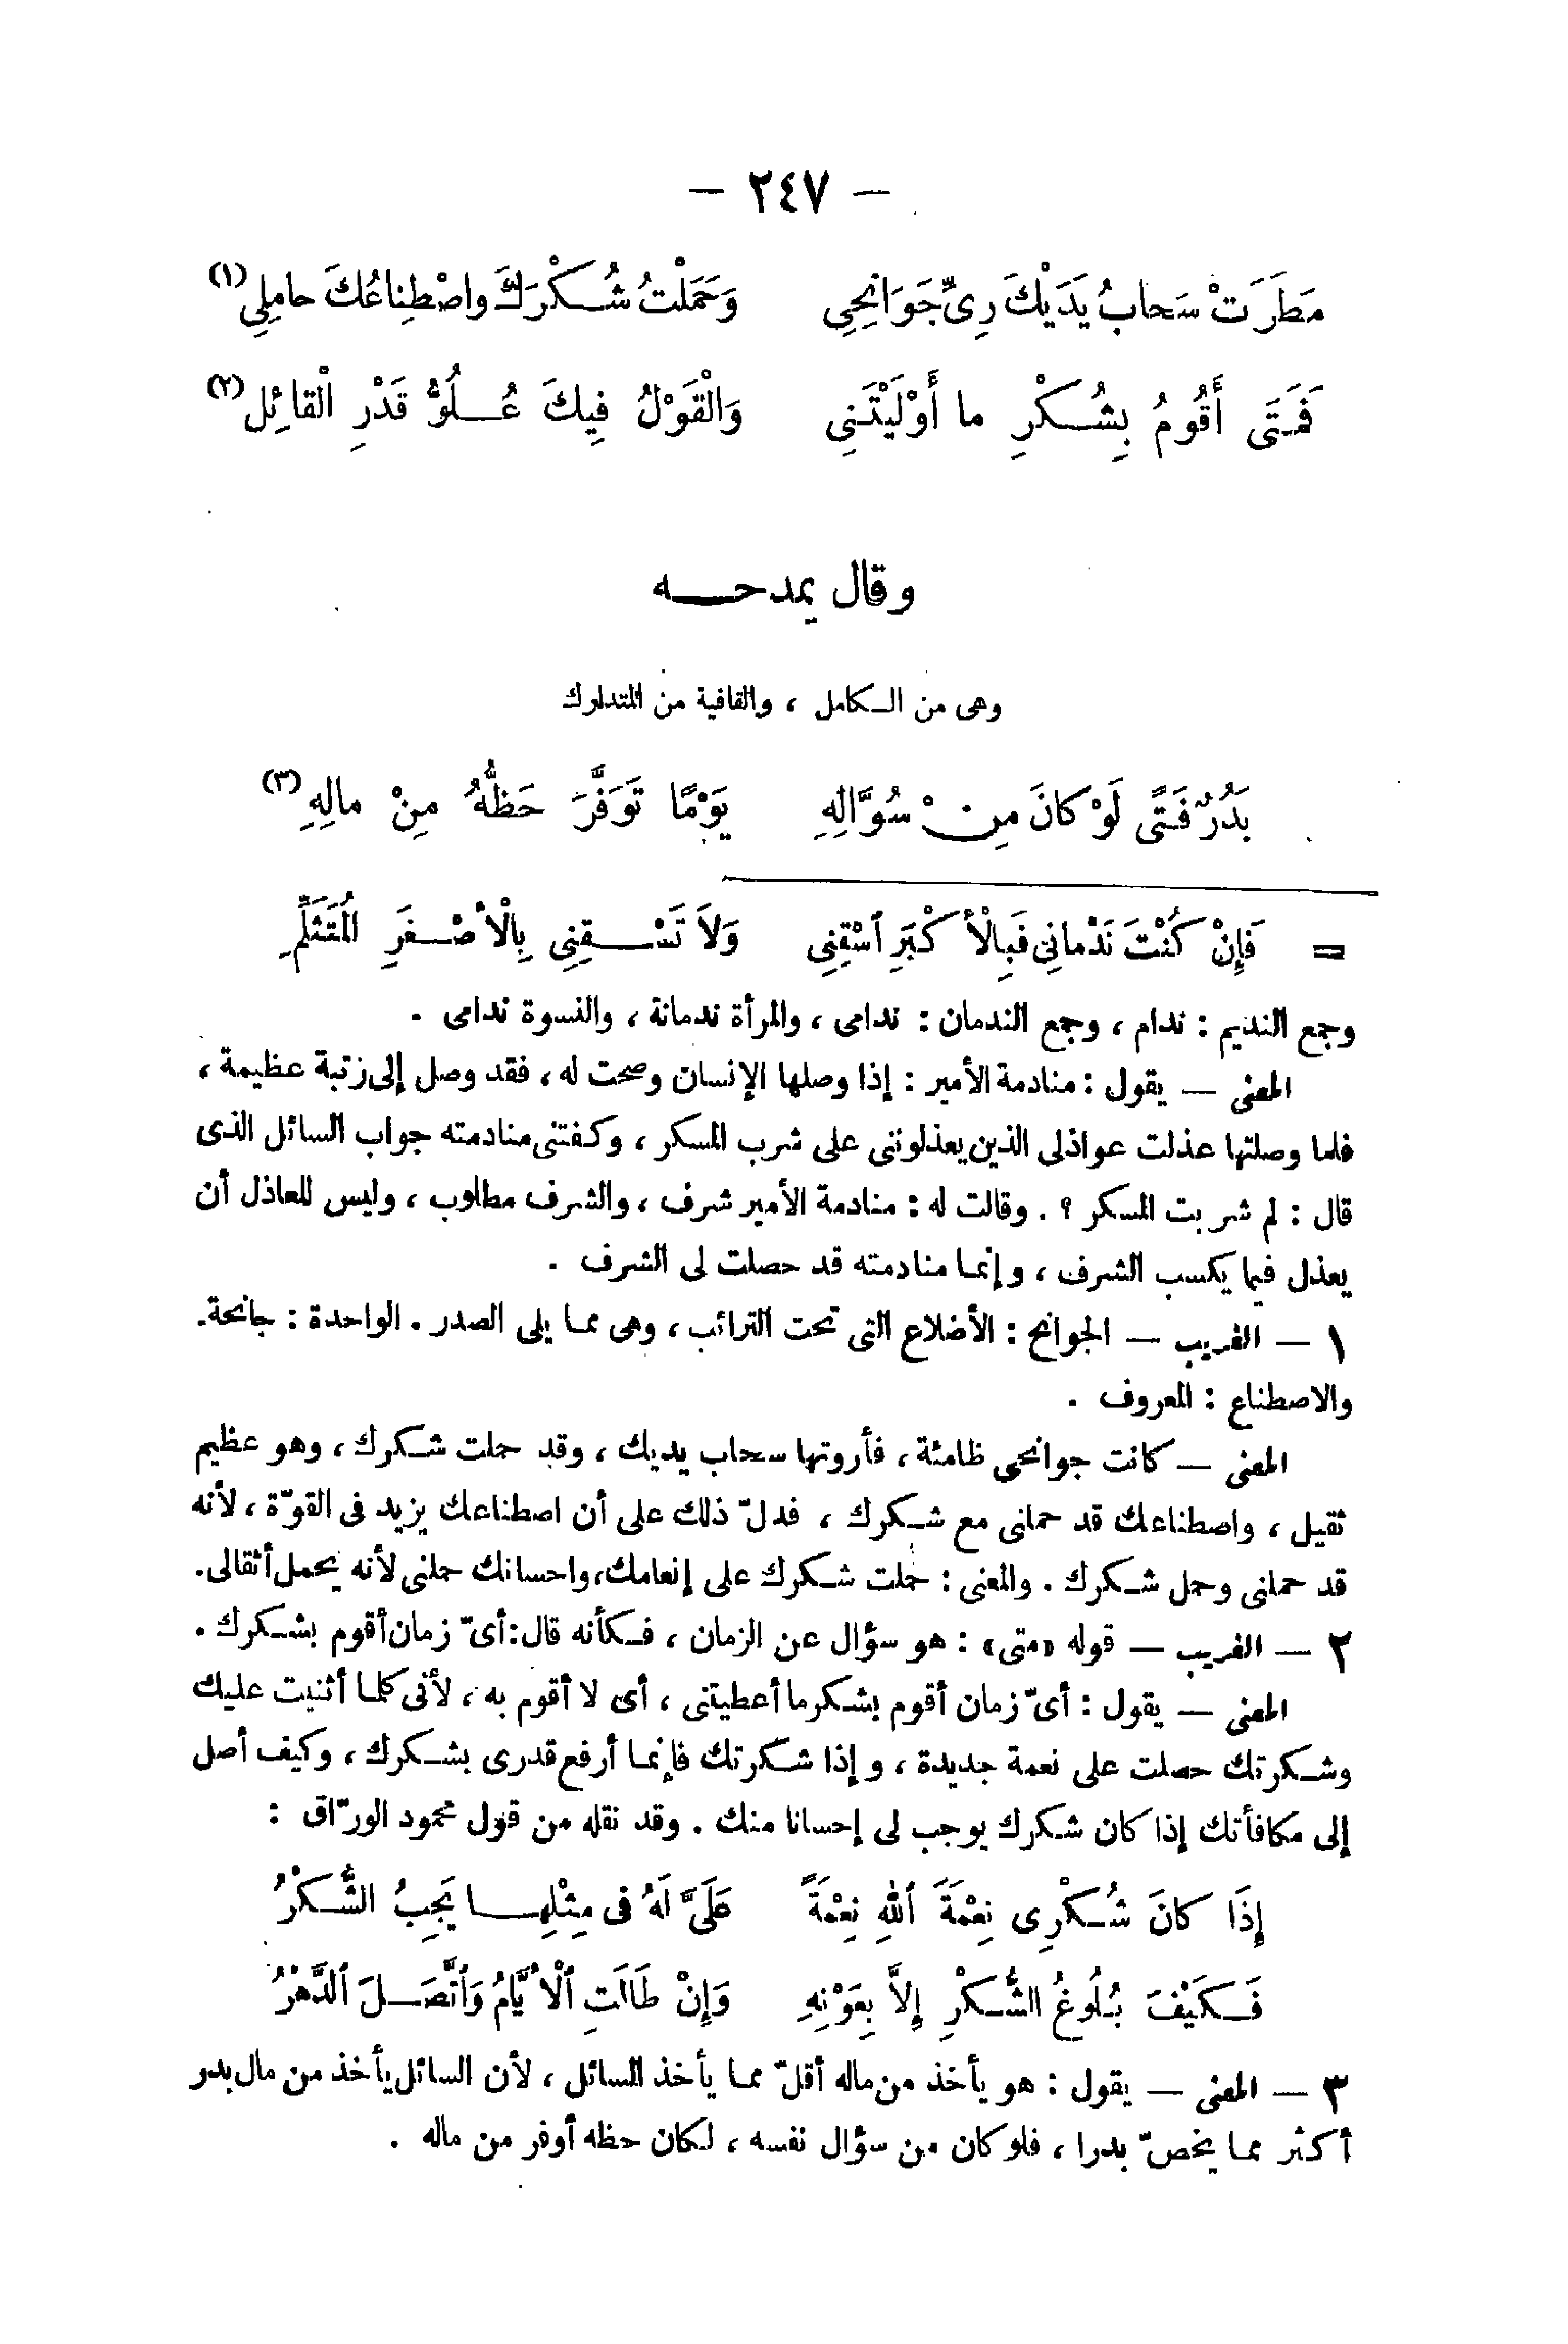 — ٢٤٧ —
مَطَرَتْ سَحابُ يَدَيْكَ رِىَّ جَوَانِحِى وَحَمَلْتُ شُكْرَكَ واصْطِناعُكَ حامِلِى (١)
فَمَتَى أَقُومُ بِشُكْرِ ما أَوْلَيْتَنِى وَالْقَوْلُ فِيكَ عُلُوُّ قَدْرِ الْقائِل (٢)
وقال يمدحه
وهى من الكامل ، والقافية من المتدارك
بَدُرٌ فَتًى لَوْ كانَ مِنْ سُوَّالِهِ يَوْمًا تَوَفَّرَ حَظُّهُ مِنْ مالِهِ (٣)
= فَإِنْ كُنْتَ نَدْمانِى فَبِالْأَكْبَرِ ٱسْقِنِى وَلاَ تَسْقِنِى بِالْأَصْغَرِ الْمُتَثَلِّمِ
وجمع النديم : ندام ، وجمع الندمان : ندامى ، والمرأة ندمانة ، والنسوة ندامى .
المعنى — يقول : منادمة الأمير : إذا وصلها الإنسان وصحت له ، فقد وصل إلى رتبة عظيمة ،
فلما وصلتها عذلت عواذلى الذين يعذلوننى على شرب المسكر ، وكفتنى منادمته جواب السائل الذى
قال : لم شربت المسكر ؟ . وقالت له : منادمة الأمير شرف ، والشرف مطلوب ، وليس للعاذل أن
يعذل فيما يكسب الشرف ، وإنما منادمته قد حصلت لى الشرف .
١ — الغريب — الجوانح : الأضلاع التى تحت الترائب ، وهى مما يلى الصدر . الواحدة : جانحة.
والاصطناع : المعروف .
المعنى — كانت جوانحى ظامئة ، فأروتها سحاب يديك ، وقد حملت شكرك ، وهو عظيم
ثقيل ، واصطناعك قد حملنى مع شكرك ، فدلّ ذلك على أن اصطناعك يزيد فى القوّة ، لأنه
قد حملنى وحمل شكرك . والمعنى : حملت شكرك على إنعامك، واحسانك حملنى لأنه يحمل أثقالى.
٢ — الغريب — قوله «متى» : هو سؤال عن الزمان ، فكأنه قال: أىّ زمان أقوم بشكرك .
المعنى — يقول : أىّ زمان أقوم بشكر ما أعطيتنى ، أى لا أقوم به ، لأنى كلما أثنيت عليك
وشكرتك حصلت على نعمة جديدة ، وإذا شكرتك فإنما أرفع قدرى بشكرك ، وكيف أصل
إلى مكافأتك إذا كان شكرك يوجب لى إحسانا منك . وقد نقله من قول محمود الورّاق :
إِذَا كانَ شُكْرِى نِعْمَةَ ٱللهِ نِعْمَةً عَلَىَّ لَهُ فى مِثْلِها يَجِبُ الشُّكْرُ
فَكَيْفَ بُلُوغُ الشُّكْرِ إِلاَّ بِعَوْنِهِ وَإِنْ طَالَتِ ٱلْأَيَّامُ وَٱتَّصَلَ ٱلدَّهْرُ
٣ — المعنى — يقول : هو يأخذ من ماله أقلّ مما يأخذ السائل ، لأن السائل يأخذ من مال بدر
أكثر مما يخصّ بدرا ، فلو كان من سؤال نفسه ، لكان حظه أوفر من ماله .